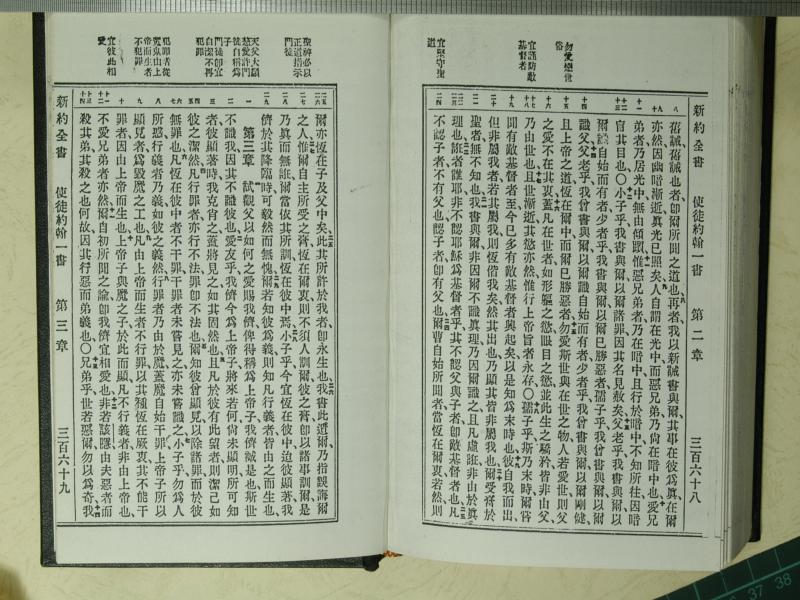 新約全書 使徒約翰一書 第二章 三百六十八
勿愛戀世俗
宜謹防敵基督者
宜堅守聖道
舊誡舊誡也者卽爾所聞之道也再者我以新誡書與爾其事在彼爲眞在爾
亦然因幽暗漸逝眞光已照矣人自謂在光中而惡兄弟乃尙在暗中也愛兄
弟者乃居光中無由傾躓惟惡兄弟者乃在暗中且行於暗中不知所往因暗
盲其目也〇小子乎我書與爾以爾諸罪因其名見赦矣父老乎我書與爾以
爾識自始而有者少者乎我書與爾以爾已勝惡者孺子乎我曾書與爾以爾
識父父老乎我曾書與爾以爾識自始而有者少者乎我曾書與爾以爾剛健
且上帝之道恆在爾中而爾已勝惡者勿愛斯世與在世之物人若愛世則父
之愛不在其衷蓋凡在世者如形軀之慾眼目之慾並此生之驕矜皆非由父
乃由世也且世漸逝其慾亦然惟行上帝旨者永存〇孺子乎斯乃末時爾嘗
聞有敵基督者至今已多有敵基督者興起矣以是知爲末時也彼自我而出
但非屬我者若其屬我則恆偕我矣然其出也乃顯其皆非屬我也爾受膏於
聖者無不知也我書與爾非因爾不識眞理乃因爾識之且凡虛誑非由於眞
理也誑者誰耶非不認耶穌爲基督者乎其不認父與子者卽敵基督者也凡
不認子者不有父也認子者卽有父也爾曹自始所聞者當恆在爾衷若然則
聖神必以正道指示門徒
天父大顯慈愛許門徒自稱爲子
門徒卽宜自潔不再犯罪
犯罪者從魔鬼由上帝而生者不犯罪
宜彼此相愛
爾亦恆在子及父中矣此其所許於我者卽永生也我書此道爾乃指誤誨爾
之人惟爾自主所受之膏恆在爾衷則不須人訓爾彼之膏卽以諸事訓爾是
乃眞而無誑爾當依其所訓恆在彼中焉小子乎今宜恆在彼中迨彼顯著我
儕於其降臨時可毅然而無愧爾若知彼爲義則知凡行義者皆由之而生也
第三章 試觀父以如何之愛賜我儕俾得稱爲上帝子我儕誠是也斯世
不識我因其不識彼也愛友乎我儕今爲上帝子將來若何尙未顯明所可知
者彼顯著時我克肖之蓋將見之如其固然也且凡於彼有此望者則潔己如
彼之潔然凡行罪者亦行不法罪卽不法也爾知彼曾顯見以除諸罪而於彼
無罪也凡恆在彼中者不干罪干罪者未嘗見之亦未嘗識之小子乎勿爲人
所惑行義者乃義如彼之義然行罪者乃由於魔蓋魔自始干罪上帝子所以
顯見者爲毀魔之工也凡由上帝而生者不行罪以其種恆在厥衷其不能干
罪者因由上帝而生也上帝子與魔之子於此而顯凡不行義者非由上帝也
不愛兄弟者亦然爾自初所聞之諭卽我儕宜相愛也非若該隱由夫惡者而
殺其弟其殺之也何故因其行惡而弟義也〇兄弟乎世若惡爾勿以爲奇我
新約全書 使徒約翰一書 第三章 三百六十九
37 38